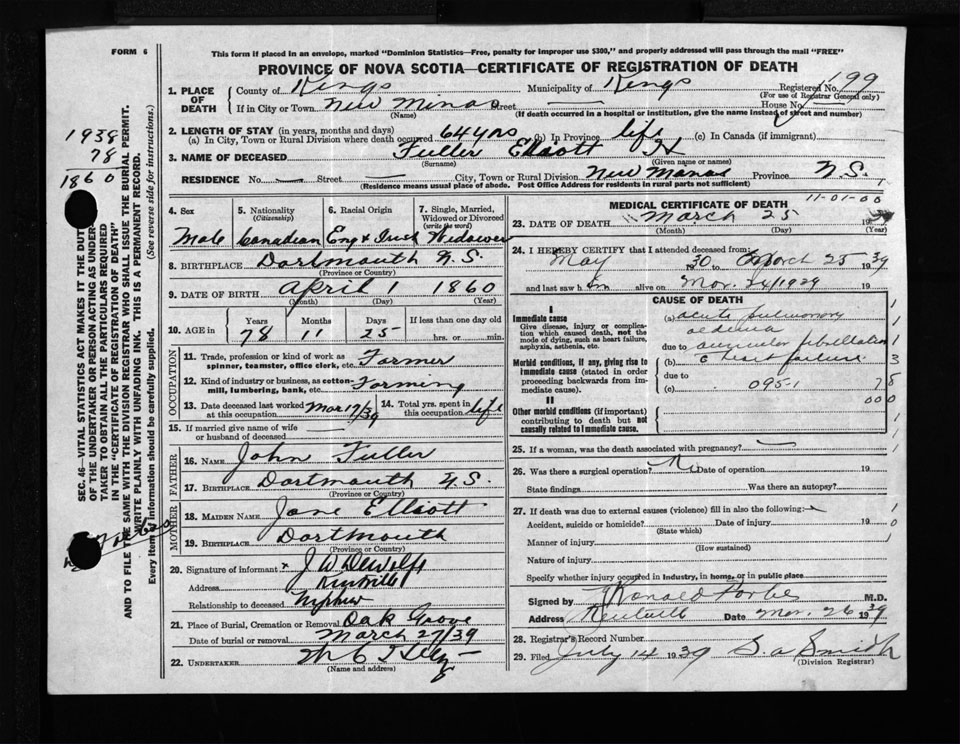 FORM 6
This form if placed in an envelope, marked "Dominion Statistics—Free, penalty for improper use $300," and properly addressed will pass through the mail "FREE"
PROVINCE OF NOVA SCOTIA—CERTIFICATE OF REGISTRATION OF DEATH
1. PLACE OF DEATH County of Kings Municipality of Kings Registered No. 199
(For use of Registrar General only)
If in City or Town New Minas Street — House No.
(Name) (If death occurred in a hospital or institution, give the name instead of street and number)
2. LENGTH OF STAY (in years, months and days)
(a) In City, Town or Rural Division where death occurred 64 yrs (b) In Province life (c) In Canada (if immigrant)
3. NAME OF DECEASED Fuller Elliott
(Surname) (Given name or names)
RESIDENCE No. — Street — City, Town or Rural Division New Manas Province N.S.
(Residence means usual place of abode. Post Office Address for residents in rural parts not sufficient)
1938
78
1860
SEC. 46—VITAL STATISTICS ACT MAKES IT THE DUTY
OF THE UNDERTAKER OR PERSON ACTING AS UNDER-
TAKER TO OBTAIN ALL THE PARTICULARS REQUIRED
IN THE "CERTIFICATE OF REGISTRATION OF DEATH"
AND TO FILE THE SAME WITH THE DIVISION REGISTRAR WHO SHALL ISSUE THE BURIAL PERMIT.
WRITE PLAINLY WITH UNFADING INK. THIS IS A PERMANENT RECORD.
Every item of information should be carefully supplied. (See reverse side for instructions.)
4. Sex 5. Nationality (Citizenship) 6. Racial Origin 7. Single, Married, Widowed or Divorced (write the word)
Male Canadian Eng & Irish Widower
8. BIRTHPLACE Dartmouth N.S.
(Province or Country)
9. DATE OF BIRTH April 1 1860
(Month) (Day) (Year)
10. AGE in Years Months Days If less than one day old
78 11 25 hrs. or min.
OCCUPATION
11. Trade, profession or kind of work as spinner, teamster, office clerk, etc. Farmer
12. Kind of industry or business, as cotton-mill, lumbering, bank, etc. Farming
13. Date deceased last worked at this occupation Mar 17/39 14. Total yrs. spent in this occupation life
15. If married give name of wife or husband of deceased —
FATHER
16. NAME John Fuller
17. BIRTHPLACE Dartmouth N.S.
(Province or Country)
MOTHER
18. MAIDEN NAME Jane Elliott
19. BIRTHPLACE Dartmouth
(Province or Country)
20. Signature of informant x J W DeWolfe
Address Kentville
Relationship to deceased Nephew
21. Place of Burial, Cremation or Removal Oak Grove
Date of burial or removal March 27/39
22. UNDERTAKER
(Name and address)
MEDICAL CERTIFICATE OF DEATH
11-01-00
23. DATE OF DEATH March 25
(Month) (Day) (Year)
24. I HEREBY CERTIFY that I attended deceased from:
May 1930 to March 25 1939
and last saw h im alive on Mar. 24/1939 19
CAUSE OF DEATH
I
Immediate cause
Give disease, injury or complication which caused death, not the mode of dying, such as heart failure, asphyxia, asthenia, etc.
(a) acute pulmonary oedema
due to auricular fibrillation
Morbid conditions, if any, giving rise to immediate cause (stated in order proceeding backwards from immediate cause).
(b) c heart failure
due to
(c) 095-1
II
Other morbid conditions (if important) contributing to death but not causally related to immediate cause.
1
1
3
78
000
25. If a woman, was the death associated with pregnancy? —
26. Was there a surgical operation? Date of operation 19
State findings Was there an autopsy?
27. If death was due to external causes (violence) fill in also the following:—
Accident, suicide or homicide? Date of injury 19
(State which)
Manner of injury
(How sustained)
Nature of injury
Specify whether injury occurred in industry, in home, or in public place
Signed by M.D.
Address Kentville Date Mar. 26 1939
28. Registrar's Record Number
29. Filed July 14 1939 S. a Smith
(Division Registrar)